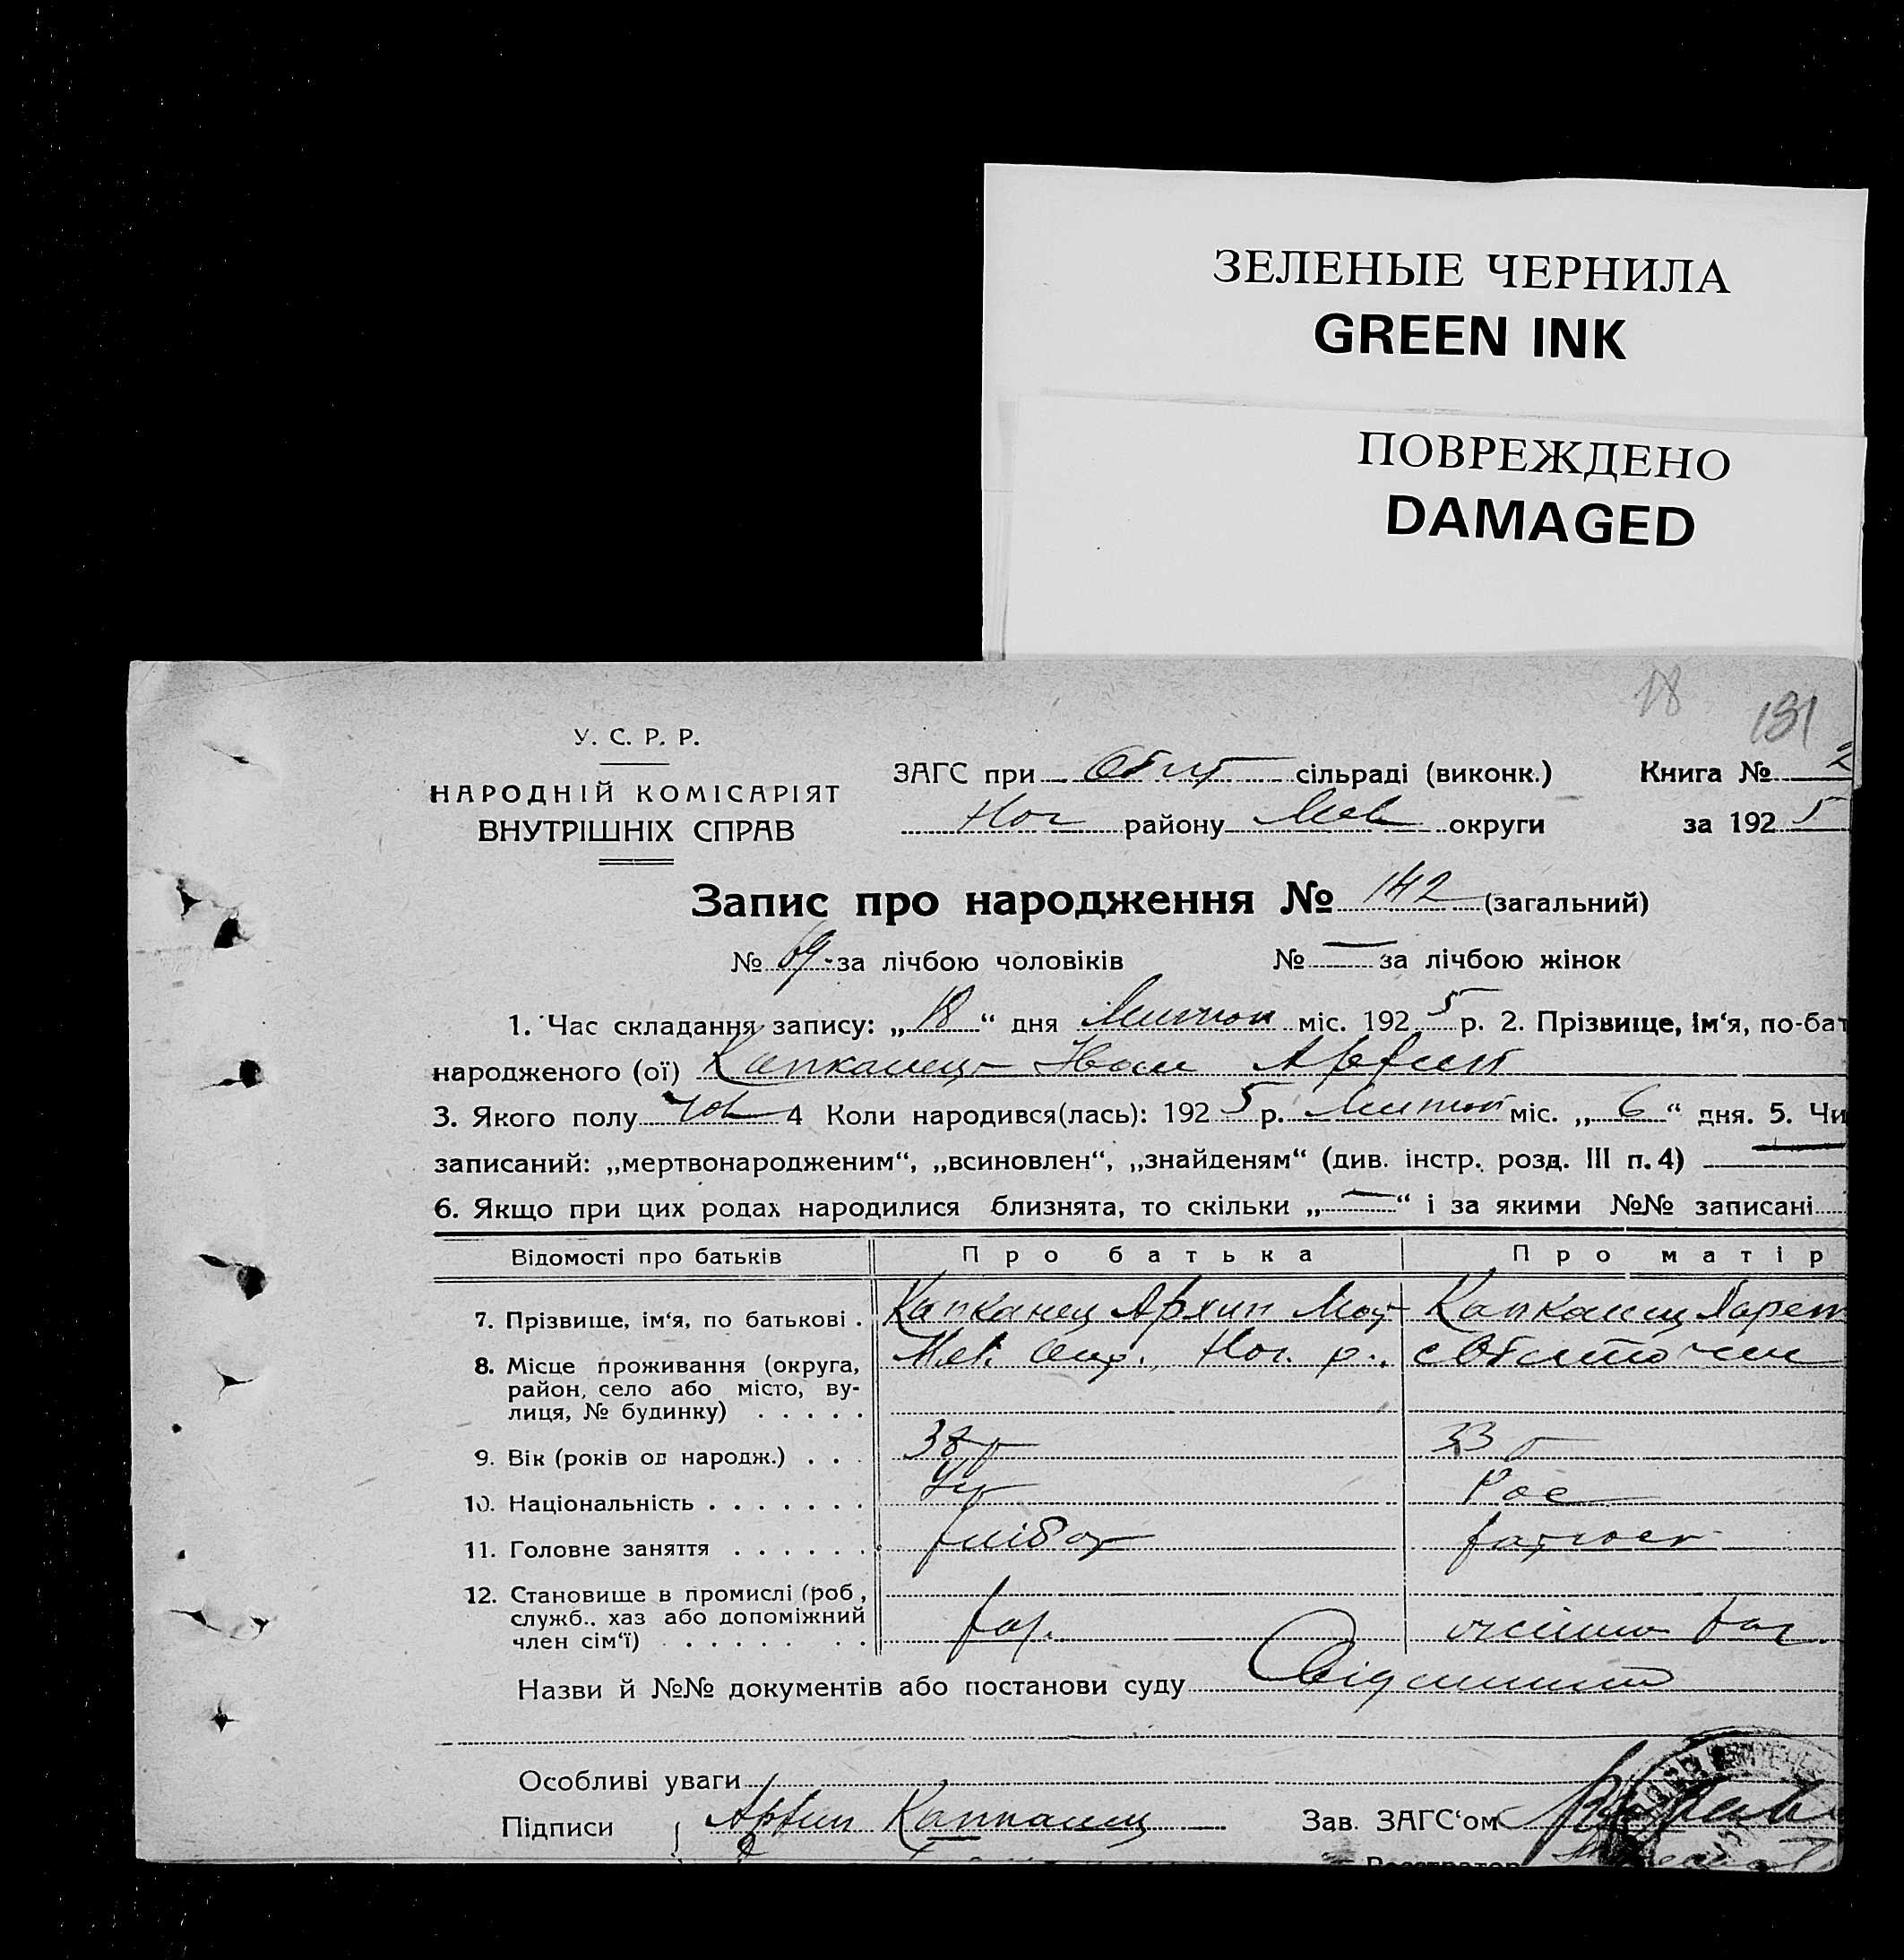 ЗЕЛЕНЫЕ ЧЕРНИЛА
GREEN INK
ПОВРЕЖДЕНО
DAMAGED
18
131
У. С. Р. Р.
НАРОДНІЙ КОМІСАРІЯТ
ВНУТРІШНІХ СПРАВ
ЗАГС при сільраді (виконк.) Книга № 2
Ног району Мел округи за 1925
Запис про народження № 142 (загальний)
№ 69 за лічбою чоловіків № — за лічбою жінок
1. Час складання запису: „18“ дня міс. 1925 р. 2. Прізвище, ім‘я, по-бат
народженого (ої) Капканець Иван Архип
3. Якого полу чол 4 Коли народився(лась): 1925 р. міс. „6“ дня. 5. Чи
записаний: „мертвонародженим“, „всиновлен“, „знайденям“ (див. інстр. розд. III п. 4) —
6. Якщо при цих родах народилися близнята, то скільки „—“ і за якими №№ записані
Відомості про батьків Про батька Про матір
7. Прізвище, ім‘я, по батькові . Капканец Архип Капканец
8. Місце проживання (округа, Мел. Окр., Ног. р.,
район, село або місто, ву-
лиця, № будинку) . . . . .
9. Вік (років од народж.) . . . 38 р 33 р
10. Національність . . . . . . . Ук Рос
11. Головне заняття . . . . . .
12. Становище в промислі (роб.,
служб., хаз або допоміжний
член сім‘ї) . . . . . . . .
Назви й №№ документів або постанови суду
Особливі уваги
Підписи Архип Капканец Зав. ЗАГС‘ом
Реєстратор